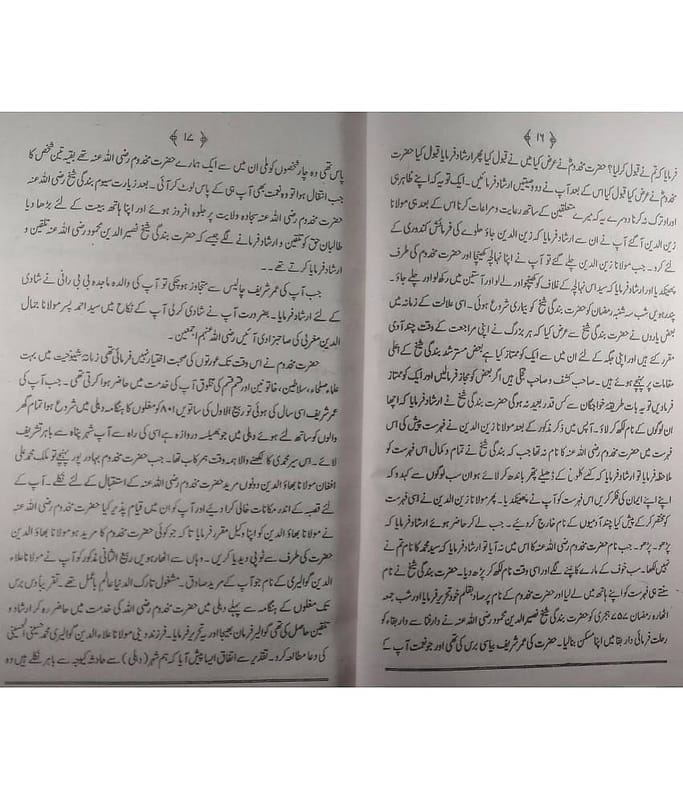 ﴿ ۱۶ ﴾
فرمایا کہ تم نے قبول کر لیا؟ حضرت مخدومؒ نے عرض کیا میں نے قبول کیا پھر ارشاد فرمایا قبول کیا حضرت
مخدومؒ نے عرض کیا قبول کیا اس کے بعد آپ نے دو وصیتیں ارشاد فرمائیں۔ ایک تو یہ کہ اپنے ظاہری
اوراد ترک نہ کرنا دوسرے یہ کہ میرے متعلقین کے ساتھ رعایت و مراعات کرنا اس کے بعد ہی مولانا
زین الدین آ گئے آپ نے ان سے ارشاد فرمایا کہ زین الدین جاؤ حلوے کی فرمائش کندوری کے
لئے کرو۔ جب مولانا زین الدین چلے گئے تو آپ نے اپنا نہالچہ کھینچا اور حضرت مخدوم کی طرف
پھینک دیا اور فرمایا کہ سید اس نہالچہ کے غلاف کو کھینچو اور لے لو اور آستین میں رکھ لو اور چلے جاؤ۔
پندرہویں شب سہ شنبہ رمضان کو حضرت بندگی شیخ کو بیماری شروع ہوئی۔ اسی علالت کے زمانہ میں
بعض یاروں نے حضرت بندگی شیخ سے عرض کیا کہ ہر بزرگ نے اپنی مراجعت کے وقت چند آدمی
مقرر کئے ہیں اور اپنی جگہ کے لئے ان میں سے ایک کو ممتاز کیا ہے بعض مسترشد بندگی شیخ کے اعلی
مقامات پر پہنچے ہوئے ہیں۔ صاحب کشف و صاحب تجلی ہیں اگر بعض کو مجاز فرمائیں اور ایک کو ممتاز
فرمادیں تو یہ بات طریقہ خواجگان سے کس قدر بعید نہ ہوگی حضرت بندگی شیخ نے ارشاد فرمایا کہ اچھا
ان لوگوں کے نام لکھ کر لاؤ۔ آپس میں ذکر مذکور کے بعد مولانا زین الدین نے فہرست پیش کی اس
فہرست میں حضرت مخدوم رضی اللہ عنہ کا نام نہ تھا جب کہ بندگی شیخ نے تمام و کمال اس فہرست کو
ملاحظہ فرمایا تو ارشاد فرمایا کہ کتنے ڈھیلے پتھر باندھ کر لائے ہو ان سب لوگوں سے کہدو کہ
اپنے اپنے ایمان کی فکر کریں اس فہرست کو آپ نے پھینک دیا۔ پھر مولانا زین الدین نے اسی فہرست
کو مختصر کر کے پیش کیا چند آدمیوں کے نام خارج کر دیے۔ جب لے کر حاضر ہوئے ارشاد فرمایا کہ
پڑھو۔ پڑھو۔ جب نام حضرت مخدوم رضی اللہ عنہ کا اس میں نہ آیا تو ارشاد فرمایا کہ سید محمد کا نام تم نے
نہیں لکھا۔ سب خوف کے مارے کانپنے لگے اور اسی وقت نام لکھ کر پڑھ دیا۔ حضرت بندگی شیخ نے نام
سنتے ہی فہرست کو اپنے ہاتھ میں لے لیا اور حضرت مخدوم کے نام پر صاد بقلم خود تحریر فرمایا اور شب جمعہ
اٹھارہ رمضان ۷۵۷ ہجری کو حضرت بندگی شیخ نصیر الدین محمود رضی اللہ عنہ نے دار فنا سے دار بقاء کو
رحلت فرمائی دار بقا میں اپنا مسکن بنالیا۔ حضرت کی عمر شریف بیاسی برس کی تھی اور جو نعمت آپ کے
﴿ ۱۷ ﴾
پاس تھی وہ چار شخصوں کو ملی ان میں سے ایک ہمارے حضرت مخدوم رضی اللہ عنہ تھے بقیہ تین شخص کا
جب انتقال ہوا تو وہ نعمت بھی آپ ہی کے پاس لوٹ کر آئی۔ بعد زیارت سیوم بندگی شیخ رضی اللہ عنہ
حضرت مخدوم رضی اللہ عنہ سجادہ ولایت پر جلوہ افروز ہوئے اور اپنا ہاتھ بیعت کے لئے بڑھا دیا
طالبان حق کو تلقین و ارشاد فرمانے لگے جیسے کہ حضرت بندگی شیخ نصیر الدین محمود رضی اللہ عنہ تلقین و
ارشاد فرمایا کرتے تھے۔۔
جب آپ کی عمر شریف چالیس سے متجاوز ہو چکی تو آپ کی والدہ ماجدہ بی بی رانی نے شادی
کے لئے ارشاد فرمایا۔ بضرورت آپ نے شادی کر لی آپ کے نکاح میں سید احمد پسر مولانا جمال
الدین مغربی کی صاحبزادی آئیں رضی اللہ عنہم اجمعین۔
حضرت مخدوم نے اس وقت تک عورتوں کی صحبت اختیار نہیں فرمائی تھی زمانہ شیخوخیت میں بہت
علماء صلحاء، سلاطین، خاتونین اور قسم قسم کی مخلوق آپ کی خدمت میں حاضر ہوا کرتی تھی۔ جب آپ کی
عمر شریف اسی سال کی ہوئی تو ربیع الاول کی ساتویں ۸۰۱ کو مغلوں کا ہنگامہ دہلی میں شروع ہوا تمام گھر
والوں کو ساتھ لئے ہوئے دہلی میں جو بھیلسہ دروازہ ہے اسی کی راہ سے آپ شہر پناہ سے باہر تشریف
لائے۔ اس سیر محمدی کا لکھنے والا ہمہ وقت ہمرکاب تھا۔ جب حضرت مخدوم بہادر پور پہنچے تو ملک محمد علی
افغان مولانا بھاؤ الدین دونوں مرید حضرت مخدوم رضی اللہ عنہ کے استقبال کے لئے نکلے۔ آپ کے
لئے قصبہ کے اندر مکانات خالی کرا دیے اور آپ کو ان میں قیام پذیر کیا حضرت مخدوم رضی اللہ عنہ
نے مولانا بھاؤ الدین کو اپنا وکیل مقرر فرمایا تا کہ جو کوئی حضرت مخدوم کا مرید ہو مولانا بھاؤ الدین
حضرت کی طرف سے ٹوپی دیدیا کریں۔ وہاں سے اٹھارہویں ربیع الثانی مذکور کو آپ نے مولانا علاء
الدین گوالیری کے نام جو آپ کے مرید صادق۔ مشغول تارک الدنیا عالم باعمل تھے۔ تقریباً دس برس
تک مغلوں کے ہنگامہ سے پہلے دہلی میں حضرت مخدوم رضی اللہ کی خدمت میں حاضر رہ کر ارشاد و
تلقین حاصل کی تھی گوالیر فرمان بھیجا اور یہ تحریر فرمایا۔ فرزند دینی مولانا علاء الدین گوالیری محمد حسینی الحسینی
کی دعا مطالعہ کرو۔ تقدیر سے اتفاق ایسا پیش آیا کہ ہم شہر (دہلی) سے حادثہ کیوجہ سے باہر نکلے ہیں وہ